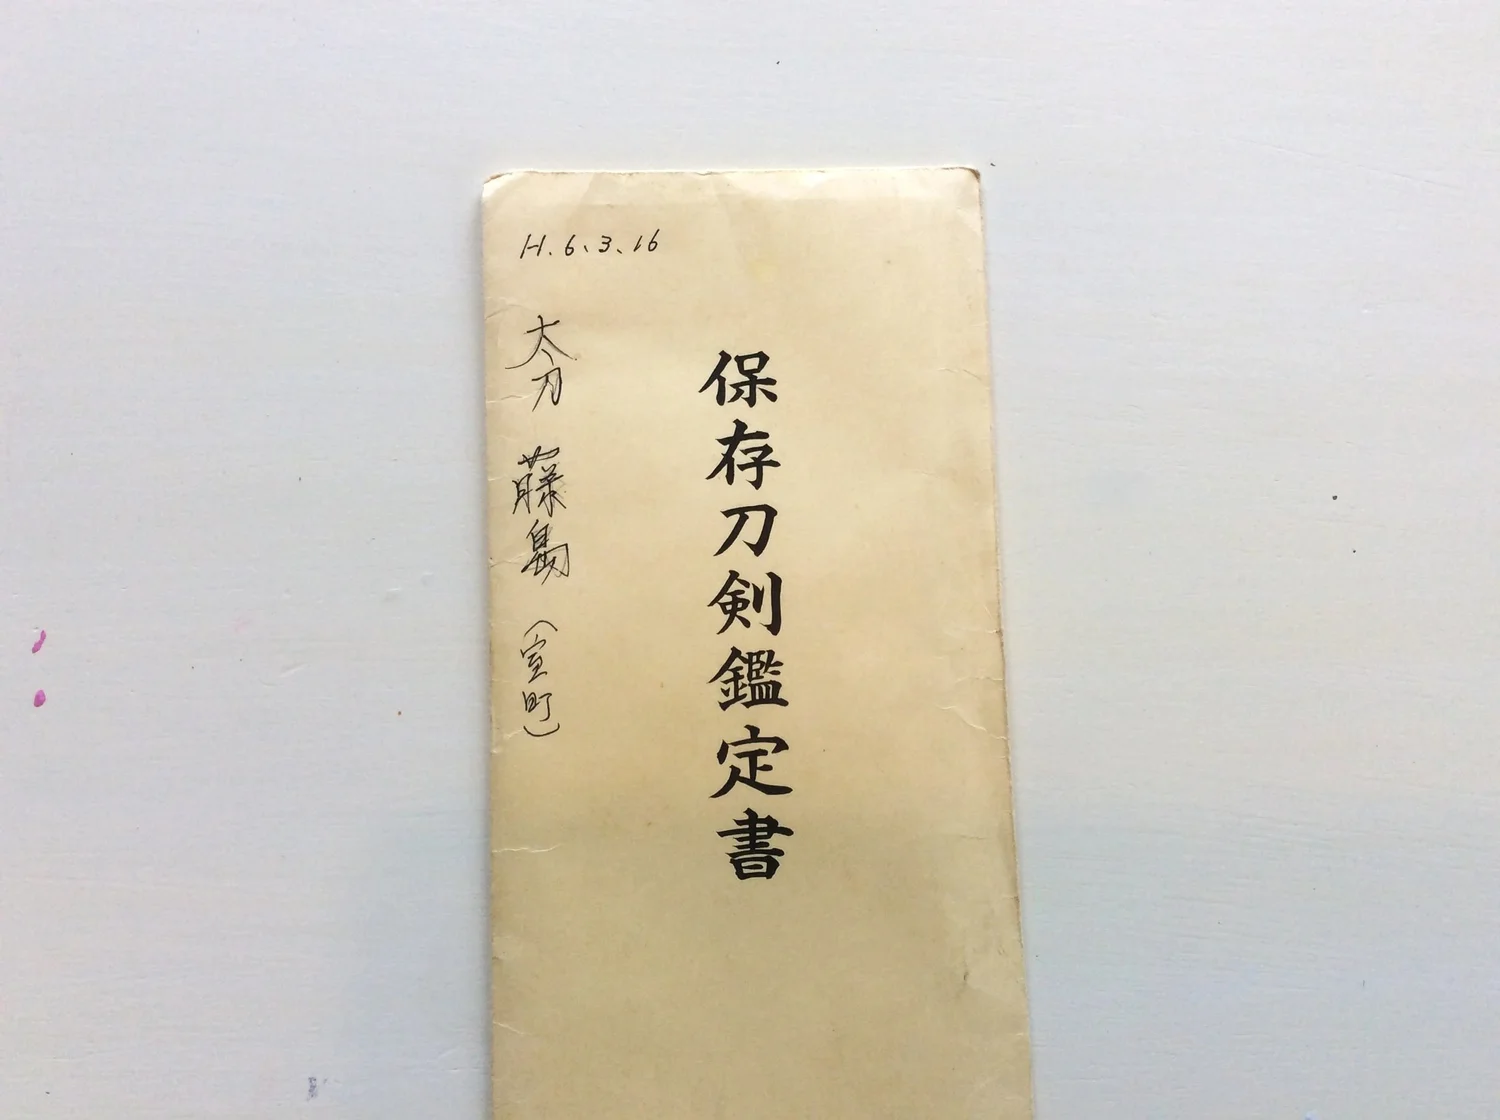 H.6.3.16
保存刀剣鑑定書
太刀 藤島 (室町)